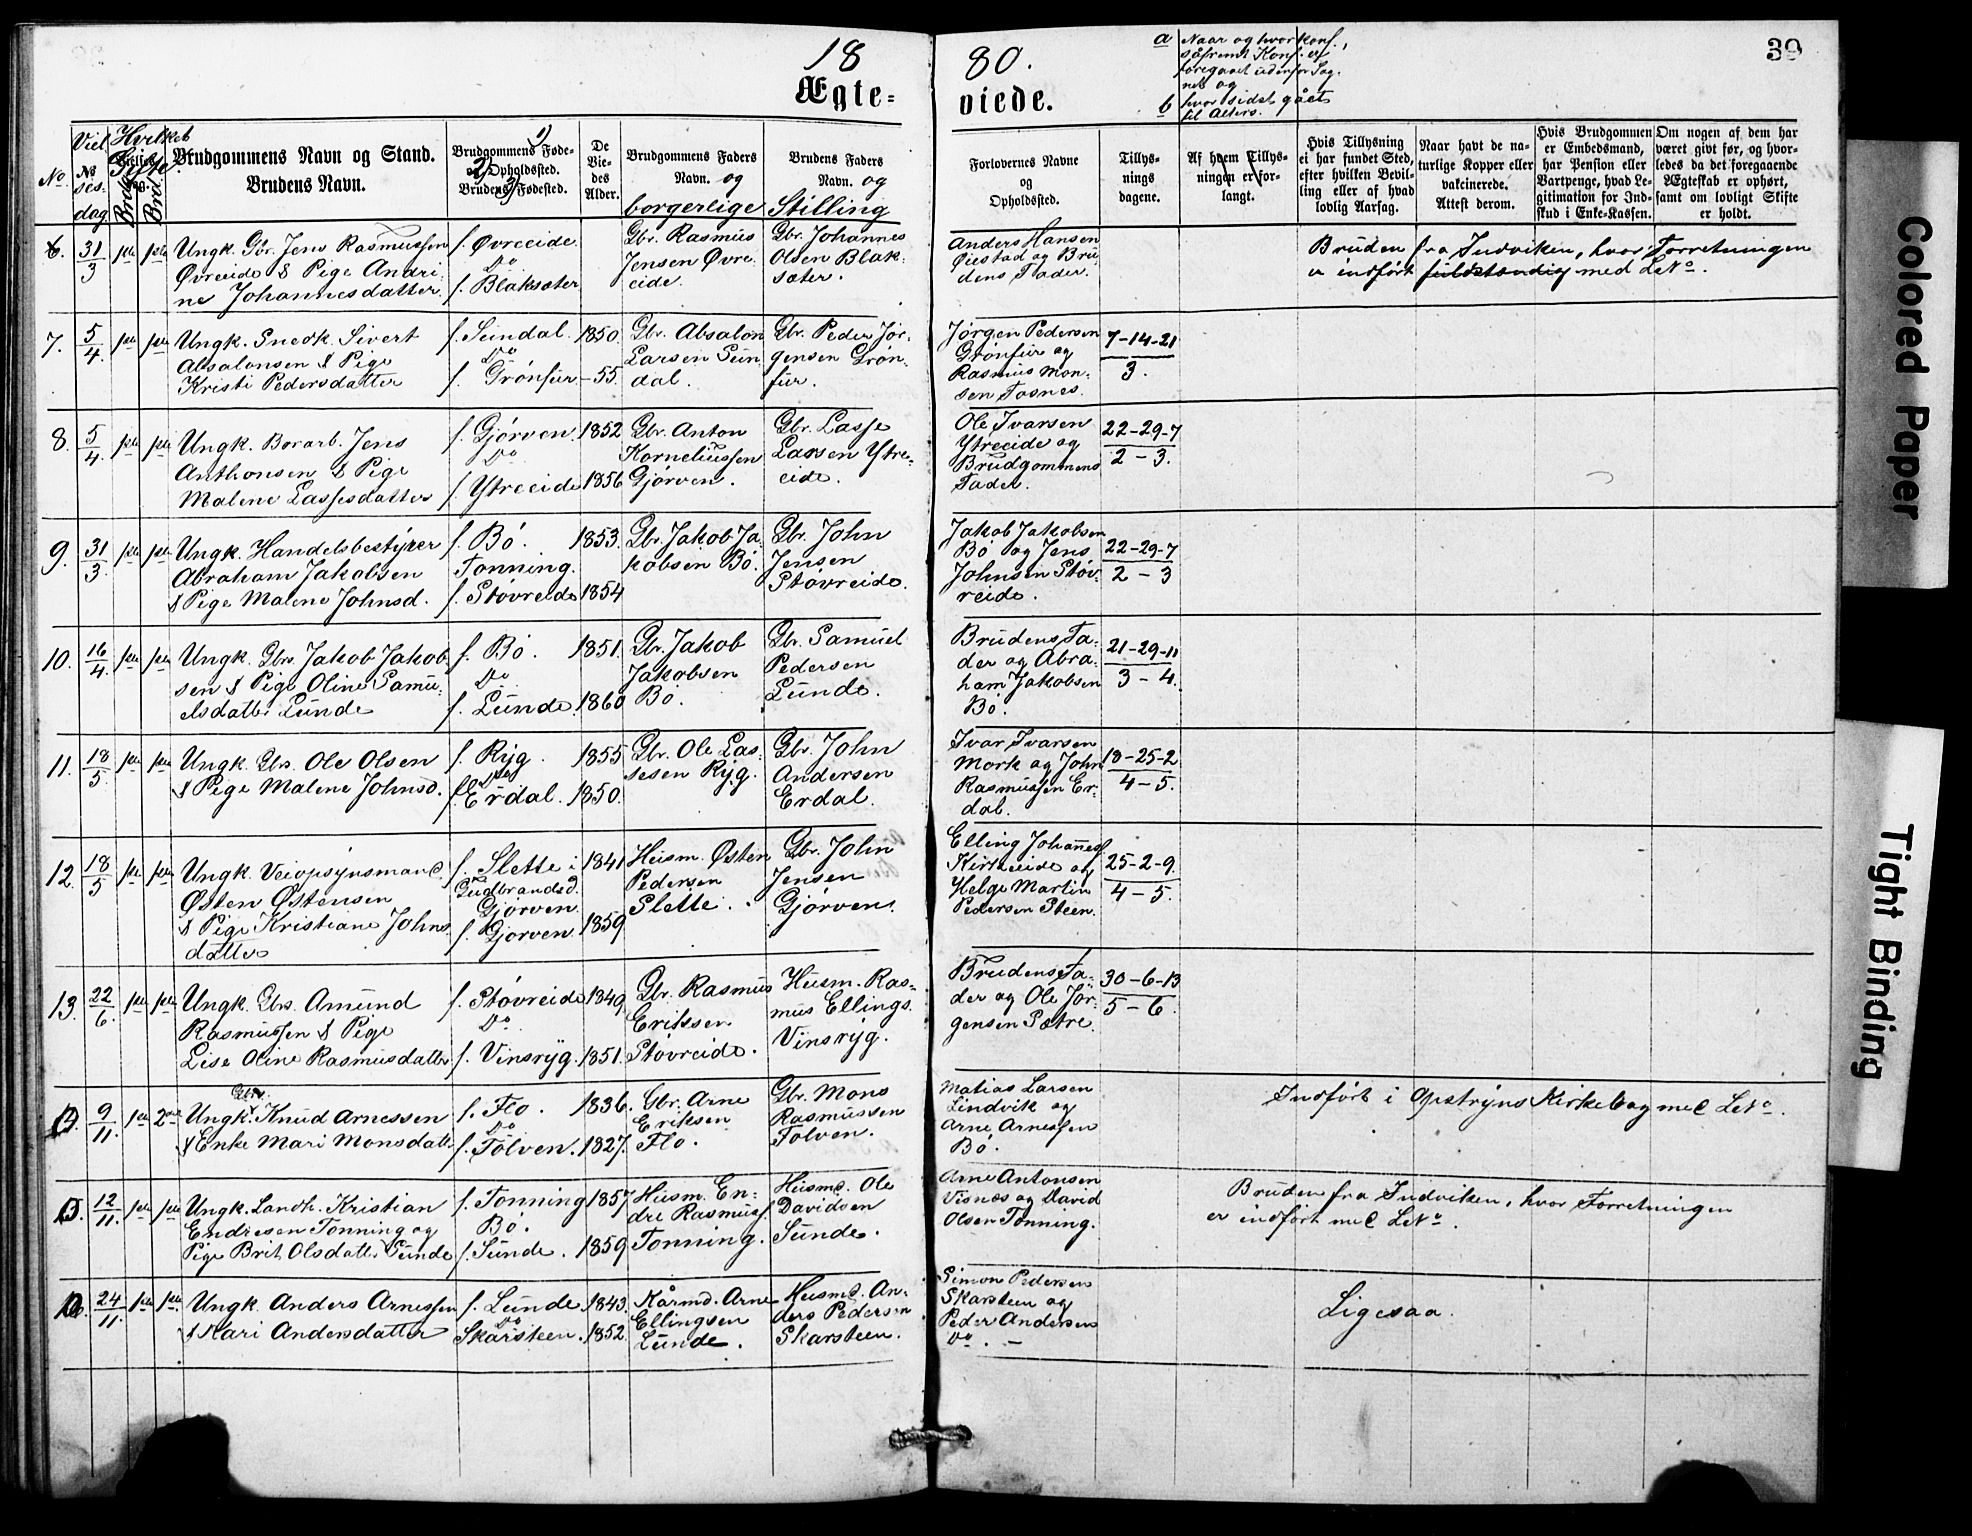 18
80.
39
Ægte=
viede.
a Naar og hvor Konf.,
såfremt Konf. er
foregaaet udenfor Sog-
net og
b hvor sidst gået
til Alters.
No.
Viel
Ns
ses-
dag
Hvilket
Gifte.
Brudg.
Brud.
Brudgommens Navn og Stand.
Brudens Navn.
Brudgommens Føde-
og Opholdssted.
Brudens Fødested.
De
Vie-
des
Alder.
Brudgommens Faders
Navn. og
borgerlige
Brudens Faders
Navn. og
Stilling
Forlovernes Navne
og
Opholdssted.
Tillys-
nings
dagene.
Af hvem Tillys-
ningen er for-
langt.
Hvis Tillysning
ei har fundet Sted,
efter hvilken Bevil-
ling eller af hvad
lovlig Aarsag.
Naar havt de na-
turlige Kopper eller
vakcinerede.
Attest derom.
Hvis Brudgommen
er Embedsmand,
har Pension eller
Vartpenge, hvad Le-
gitimation for Ind-
skud i Enke-Kassen.
Om nogen af dem har
været givt før, og hvor-
ledes da det foregaaende
Ægteskab er ophørt,
samt om lovligt Skifte
er holdt.
6. 31/3 1ste 1ste
Ungk. Gbr. Jens Rasmussen
Øvreeide & Pige Andri-
ne Johannesdatter.
f. Øvreeide
Do
f. Blaksæter
Gbr. Rasmus
Jensen Øvre-
eide.
Gbr. Johannes
Olsen Blak-
sæter.
Anders Hansen
Øiestad og Bru-
dens Fader.
Bruden fra Indviken, hvor Forretningen
er indført fuldstændig med LNo.
7. 5/4 1ste 1ste
Ungk. Snedk. Sivert
Absalonsen & Pige
Kristi Pedersdatter
f. Sundal.
Do
f. Grönfur
1850.
-55.
Gbr. Absalon
Larsen Sun-
dal.
Gbr. Peder Jör-
gensen Grön-
fur.
Jörgen Pedersen
Grönfur og
Rasmus Mon-
sen Fosnes.
7-14-21
3.
8. 5/4 1ste 1ste
Ungk. Borarb. Jens
Anthonsen & Pige
Malene Lassesdatter
f. Gjörven.
Do
f. Ytreeide
1852
1856
Gbr. Anton
Korneliussen
Gjörven.
Gbr. Lasse
Larsen Ytre-
eide.
Ole Ivarsen
Ytreeide og
Brudgommens
Fader.
22-29-7
2 - 3.
9. 31/3 1ste 1ste
Ungk. Handelsbestyrer
Abraham Jakobsen
& Pige Malene Johnsd.
f. Bö.
Tonning.
f. Stövreide
1853.
1854
Gbr. Jakob Ja-
kobsen Bö.
Gbr. John
Jensen
Stövreide.
Jakob Jakobsen
Bö og Jens
Johnsen Stöv-
reide.
22-29-7
2 - 3
10. 16/4 1ste 1ste
Ungk. Gbr. Jakob Jakob-
sen & Pige Oline Samu-
elsdatter Lunde
f. Bö.
Do
f. Lunde.
1851.
1860
Gbr. Jakob
Jakobsen
Bö.
Gbr. Samuel
Pedersen
Lunde.
Brudens Fa-
der og Abra-
ham Jakobsen
Bö.
21-29-11
3 - 4.
11. 18/5 1ste 1ste
Ungk. Gbr. Ole Olsen
& Pige Malene Johnsd.
f. Ryg.
Do
f. Erdal.
1855
1850.
Gbr. Ole Las-
sesen Ryg.
Gbr. John
Andersen
Erdal.
Ivar Ivarsen
Mork og John
Rasmussen Er-
dal.
18-25-2
4 - 5.
12. 18/5 1ste 1ste
Ungk. Veiopsynsmand
Østen Østensen
& Pige Kristiane Johns-
datter
f. Slette i
Gudbrandsd.
Gjörven
f. Gjörven.
1841
1859
Husm. Østen
Pedersen
Slette.
Gbr. John
Jensen
Gjörven.
Elling Johannes
Kirkeeide og
Helge Martin
Pedersen Steen.
25-2-9.
4 - 5.
13. 22/6 1ste 1ste
Ungk. Gbr. Amund
Rasmussen & Pige
Lise Oline Rasmusdatter
f. Stövreide
Do
f. Vinsryg.
1849.
1851.
Gbr. Rasmus
Eriksen
Stövreide.
Husm. Ras-
mus Ellings.
Vinsryg.
Brudens Fa-
der og Ole Jör-
gensen Sætre.
30-6-13
5 - 6.
9/11. 1ste 2den
Gbr.
Ungk. Knud Arnessen
& Enke Mari Monsdatt.
f. Flo.
Do
f. Folven.
1836.
1827.
Gbr. Arne
Eriksen
Flo.
Gbr. Mons
Rasmussen
Folven.
Matias Larsen
Lindvik og
Arne Arnessen
Bö.
Indført i Opstryns Kirkebog med LNo.
12/11. 1ste 1ste
Ungk. Landh. Kristian
Endresen Tonning og
Pige Brit Olsdatter Sunde
f. Tonning
Bö.
f. Sunde.
1857
1859
Husm. En-
dre Rasmuss.
Tonning.
Husmd. Ole
Davidsen
Sunde.
Arne Antonsen
Visnæs og David
Olsen Tonning.
Bruden fra Indviken, hvor Forretningen
er indført med LNo.
24/11. 1ste 1ste
Ungk. Anders Arnessen
& Kari Andersdatter
f. Lunde
Do
Skarsteen.
1843.
1852.
Kårmd. Arne
Ellingsen
Lunde.
Husmd. An-
ders Pedersen
Skarsteen.
Simon Pedersen
Skarsteen og
Peder Andersen
Do. -
Ligesaa.
Colored Paper
Tight Binding